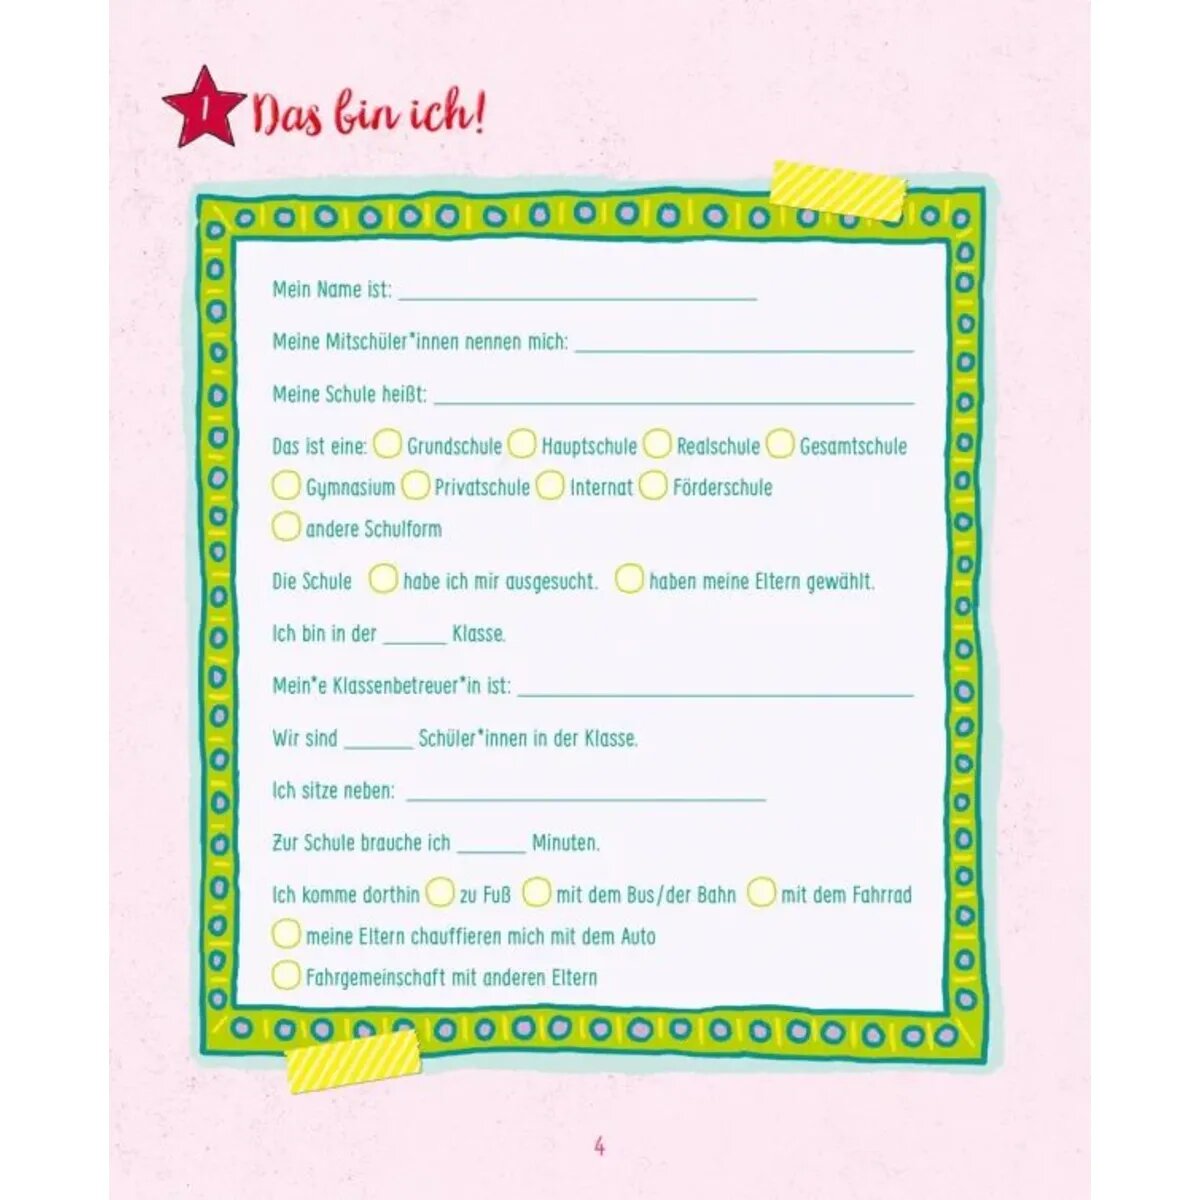 1 Das bin ich!
Mein Name ist:
Meine Mitschüler*innen nennen mich:
Meine Schule heißt:
Das ist eine: Grundschule Hauptschule Realschule Gesamtschule
Gymnasium Privatschule Internat Förderschule
andere Schulform
Die Schule habe ich mir ausgesucht. haben meine Eltern gewählt.
Ich bin in der ______ Klasse.
Mein*e Klassenbetreuer*in ist:
Wir sind ______ Schüler*innen in der Klasse.
Ich sitze neben:
Zur Schule brauche ich ______ Minuten.
Ich komme dorthin zu Fuß mit dem Bus/der Bahn mit dem Fahrrad
meine Eltern chauffieren mich mit dem Auto
Fahrgemeinschaft mit anderen Eltern
4